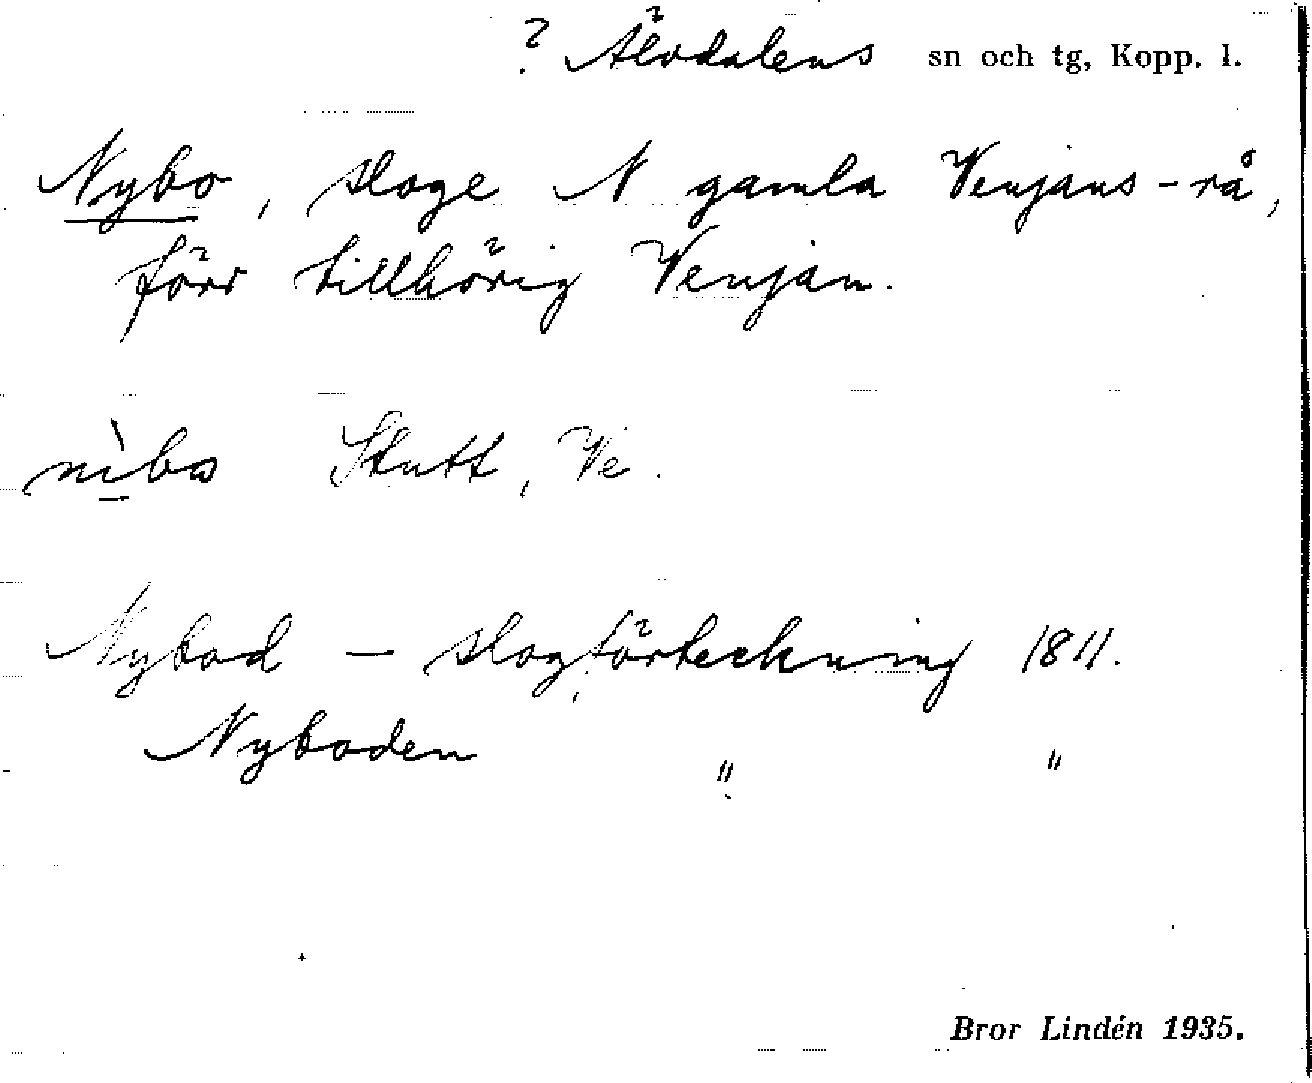 ? Älvdalens sn och tg, Kopp. l.
Nybo, sloge N gamla Venjans-rå,
förr tillhörig Venjan.
nìbo Stutt, Ve.
Nybod — slogförteckning 1811.
Nyboden " "
Bror Lindén 1935.